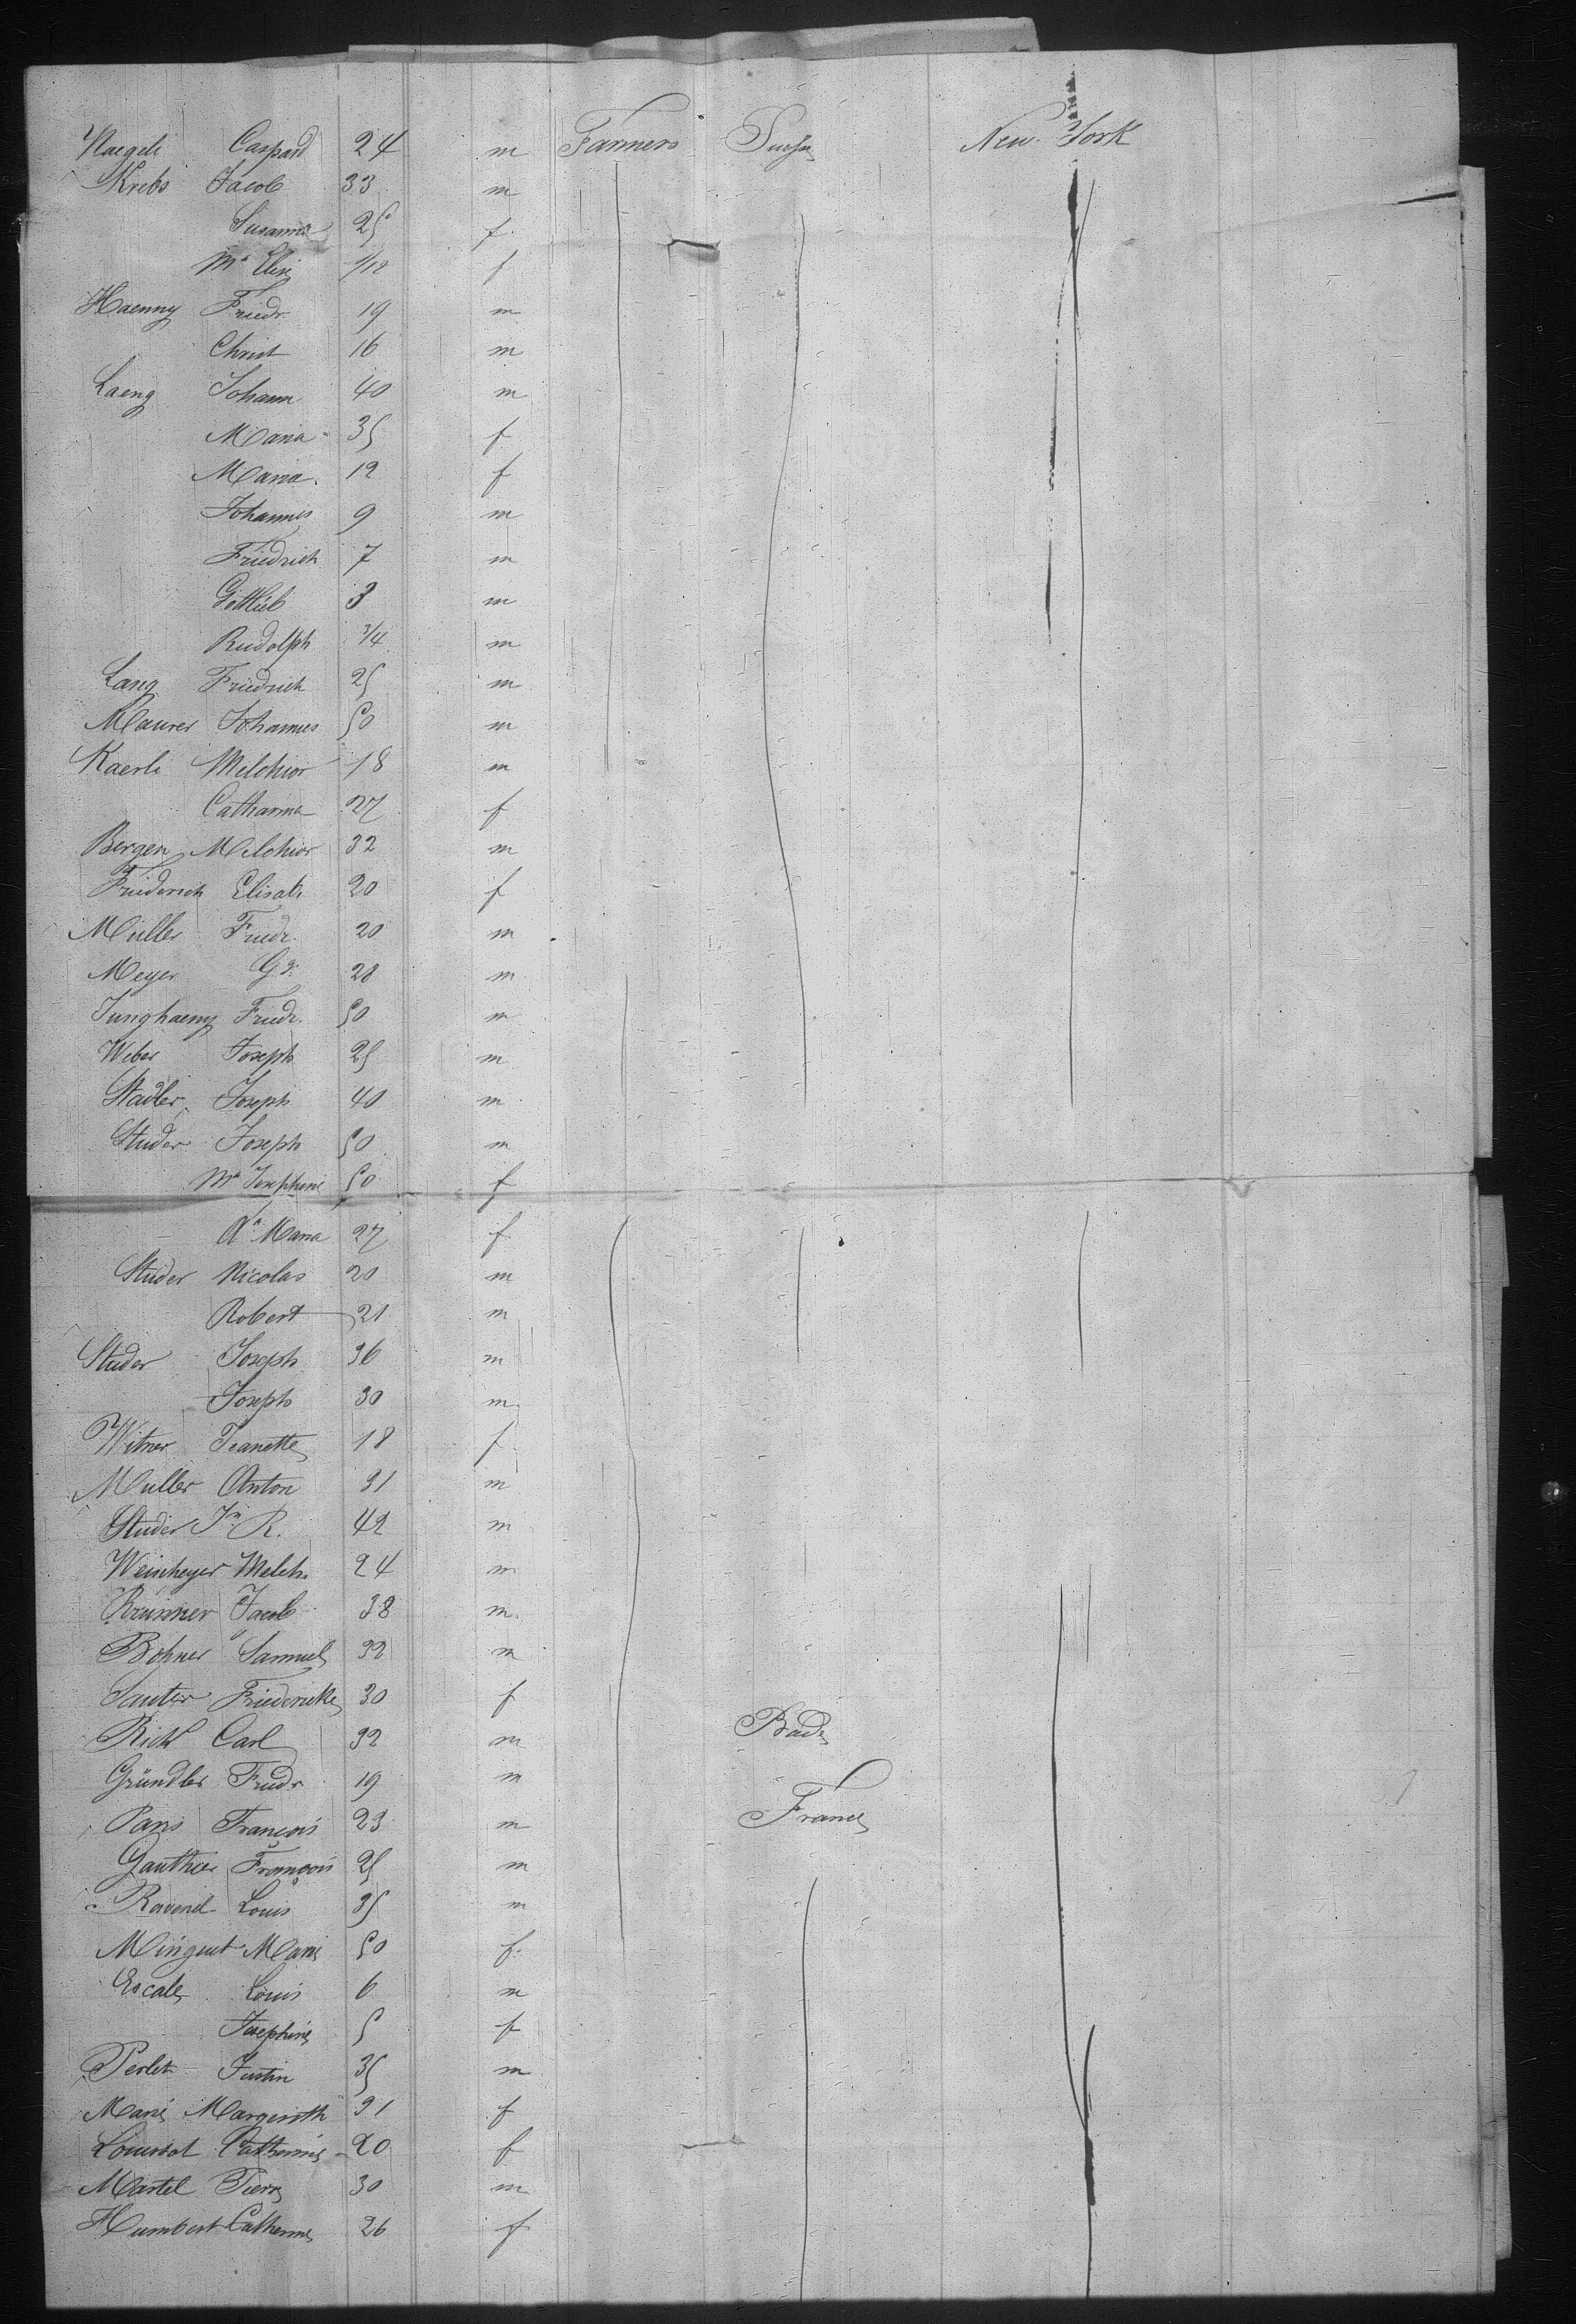 Naegeli Caspard 24 m Farmers Suisse New-York
Krebs Jacob 33 m
Susanna 25 f
Ma Elise 1/12 f
Haenny Friedr. 19 m
Christ 16 m
Laeng Johann 40 m
Maria 35 f
Maria 12 f
Johannes 9 m
Friedrich 7 m
Gottlieb 3 m
Rudolph 3/4 m
Lang Friedrich 25 m
Maurer Johannes 50 m
Kaerli Melchior 18 m
Catharina 27 f
Bergen Melchior 32 m
Friederich Elisab. 20 f
Müller Friedr. 20 m
Meyer Gg. 28 m
Junghaeny Friedr. 50 m
Weber Joseph 25 m
Stadler Joseph 40 m
Studer Joseph 50 m
Ma Josephine 50 f
Aa Maria 27 f
Studer Nicolas 20 m
Robert 21 m
Studer Joseph 36 m
Joseph 30 m
Witner Jeanette 18 f
Muller Anton 31 m
Studer Jn R. 42 m
Weinheyer Melch. 24 m
Brunner Jacob 38 m
Bohner Samuel 32 m
Sauter Friedericke 30 f
Carl 32 m Bade
Gründler Friedr 19 m
Paris François 23 m France
Gauthier François 25 m
Ravenel Louis 35 m
Marie 50 f
Escale Louis 6 m
Josephine 5 f
Perlet Justin 35 m
Marie Margerith 31 f
Catherine 20 f
Martel Pierre 30 m
Humbert Catherine 26 f